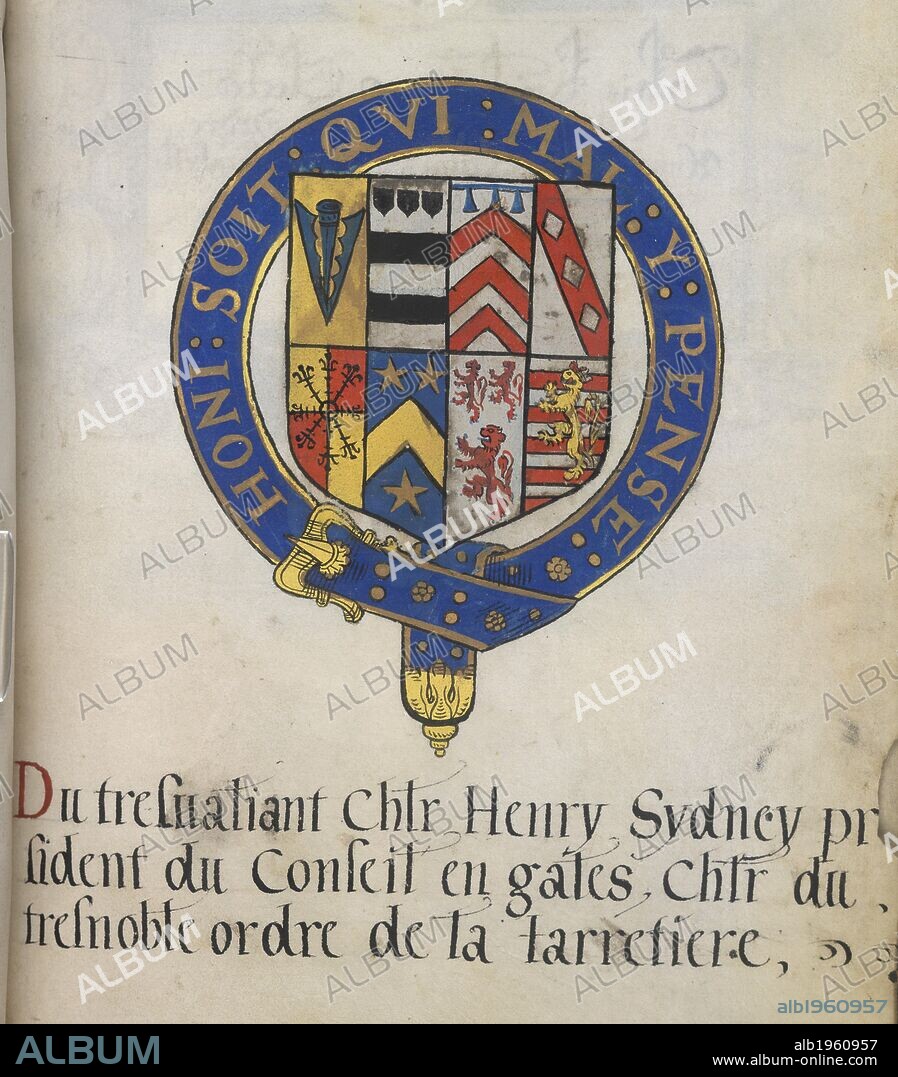 HONI : SOIT · QVI : MAL : Y : PENSE :
Du tresualiant Chlr Henry Sydney pr
sident du Conseil en gales, Chlr du
tresnoble ordre de la Iarretiere,
alb1960957
ALBUM
alb1960957
www.album-online.com